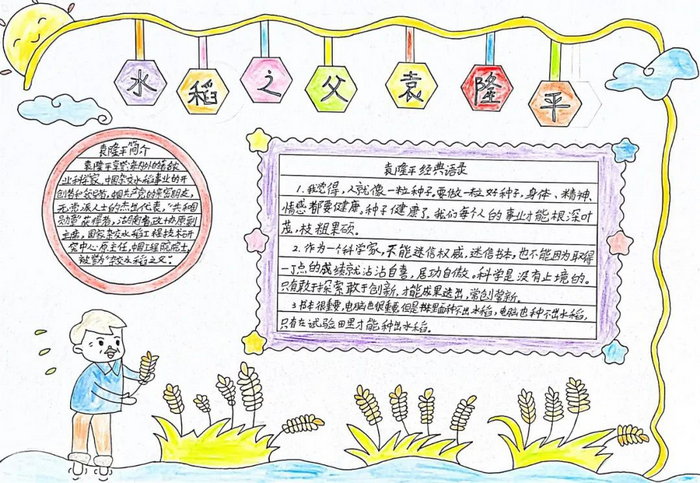 水稻之父袁隆平
袁隆平简介
袁隆平享誉海内外的农
业科学家，中国杂交水稻事业的开
创者和领导者，中国共产党的亲密朋友，
无党派人士的杰出代表，“共和国
勋章”获得者，湖南省政协原副
主席，国家杂交水稻工程技术研
究中心原主任，中国工程院院士，
被誉为“杂交水稻之父”。
袁隆平经典语录
1.我觉得，人就像一粒种子。要做一粒好种子，身体、精神、
情感都要健康。种子健康了，我们每个人的事业才能根深叶
茂，枝粗果硕。
2.作为一个科学家，不能迷信权威，迷信书本，也不能因为取得
一丁点的成绩就沾沾自喜，居功自傲。科学是没有止境的。
只有敢于探索敢于创新，才能成果迭出，常创常新。
3.书本很重要，电脑也很重要，但是书本里面种不出水稻，电脑也种不出水稻，
只有在试验田里才能种出水稻。